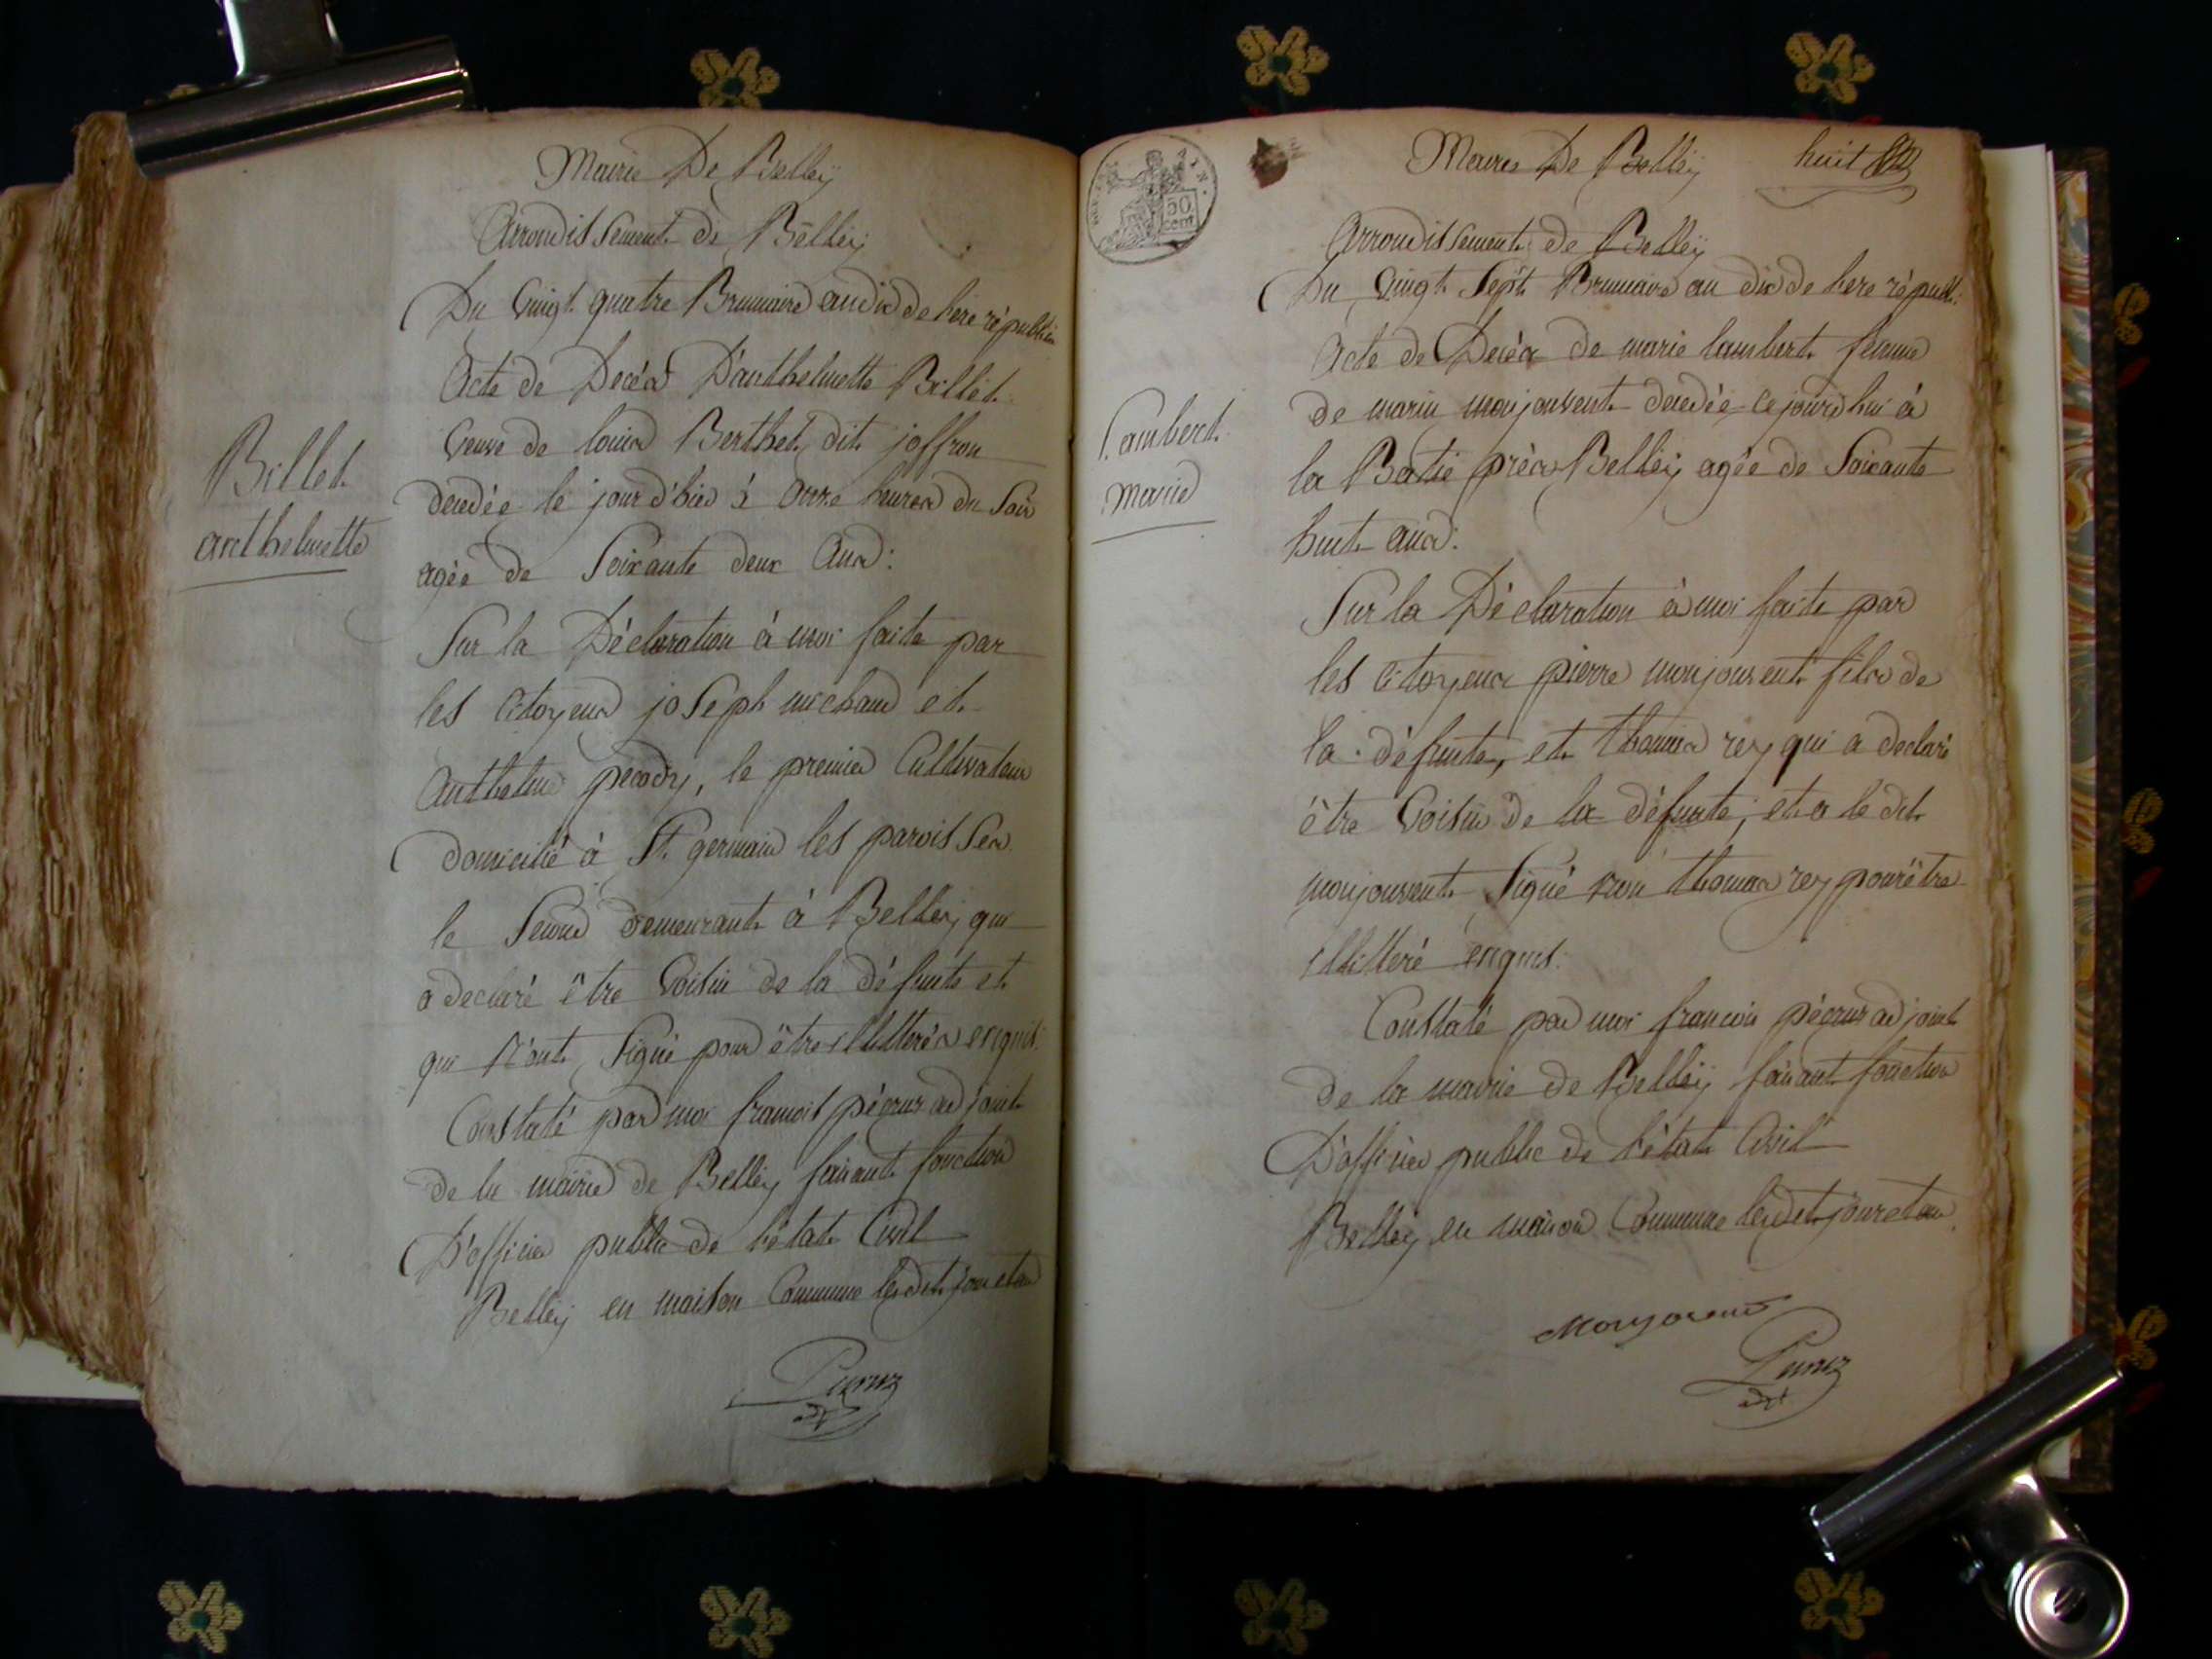 Mairie De Belley
Arrondissement de Belley
Du Vingt quatre Brumaire an dix de l'ere républic
Acte de Decès D'anthelmette Billet
Veuve de louis Berthet dit joffron
decedée le jour d'hier à onze heures du soir
agée de Soixante deux Ans:
Sur la Déclaration à moi faite par
les citoyens joseph michaud et
Anthelme pecody, le premier Cultivateur
domicilié à St. germain les paroisses
le Second demeurant à Belley qui
a declaré être Voisin de la défunte et
qui n'ont Signé pour être illitterés enquis.
Constaté par moi francois pécruz adjoint
de la mairie de Belley faisant fonction
D'officier public de l'état Civil
Belley en maison Commune lesdits jour et an
Billet
anthelmette
Mairie De Belley
huit
50
cent
Arrondissement de Belley
Du Vingt Sept Brumaire an dix de l'ere républ:
Acte de Decés de marie lambert femme
de marin monjouvent decedée ce jourd'hui à
la Batie près Belley agée de Soixante
huit ans:
Sur la Déclaration à moi faite par
les citoyens pierre monjouvent fils de
la défunte, et thomas rey qui a declaré
être Voisin de la défunte; et a le dit
monjouvent Signé non thomas rey pour être
illitteré enquis.
Constaté par moi francois pécruz adjoint
de la mairie de Belley faisant fonction
D'officier public de l'état Civil
Belley en maison Commune lesdits jour et an.
Lambert
marie